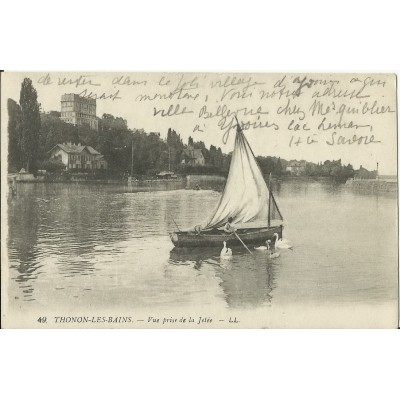 de rester dans le joli village d'Yvoire qui
serait monotone, Vous notre adresse
ville Bellerue chez Mr Guiblier
à Yvoires lac Leman,
Hte Savoie
49. THONON-LES-BAINS. — Vue prise de la Jetée — LL.